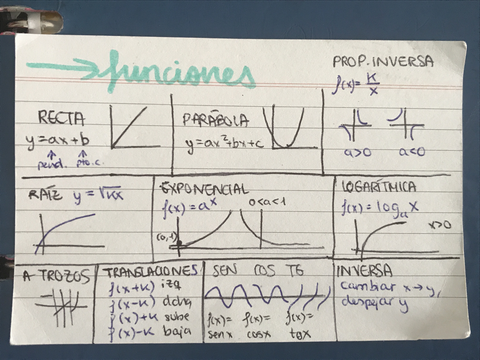 funciones
PROP. INVERSA
f(x)= K/x
a>0 a<0
RECTA
y=ax+b
pend. pto.c.
PARÁBOLA
y=ax²+bx+c
RAÍZ y=√Kx
EXPONENCIAL
f(x)=aˣ 0<a<1
(0,1)
LOGARÍTMICA
f(x)=logₐx
x>0
A TROZOS
TRANSLACIONES
f(x+K) izq
f(x-K) dcha
f(x)+K sube
f(x)-K baja
SEN COS TG
f(x)= f(x)= f(x)=
senx cosx tgx
INVERSA
cambiar x→y,
despejar y